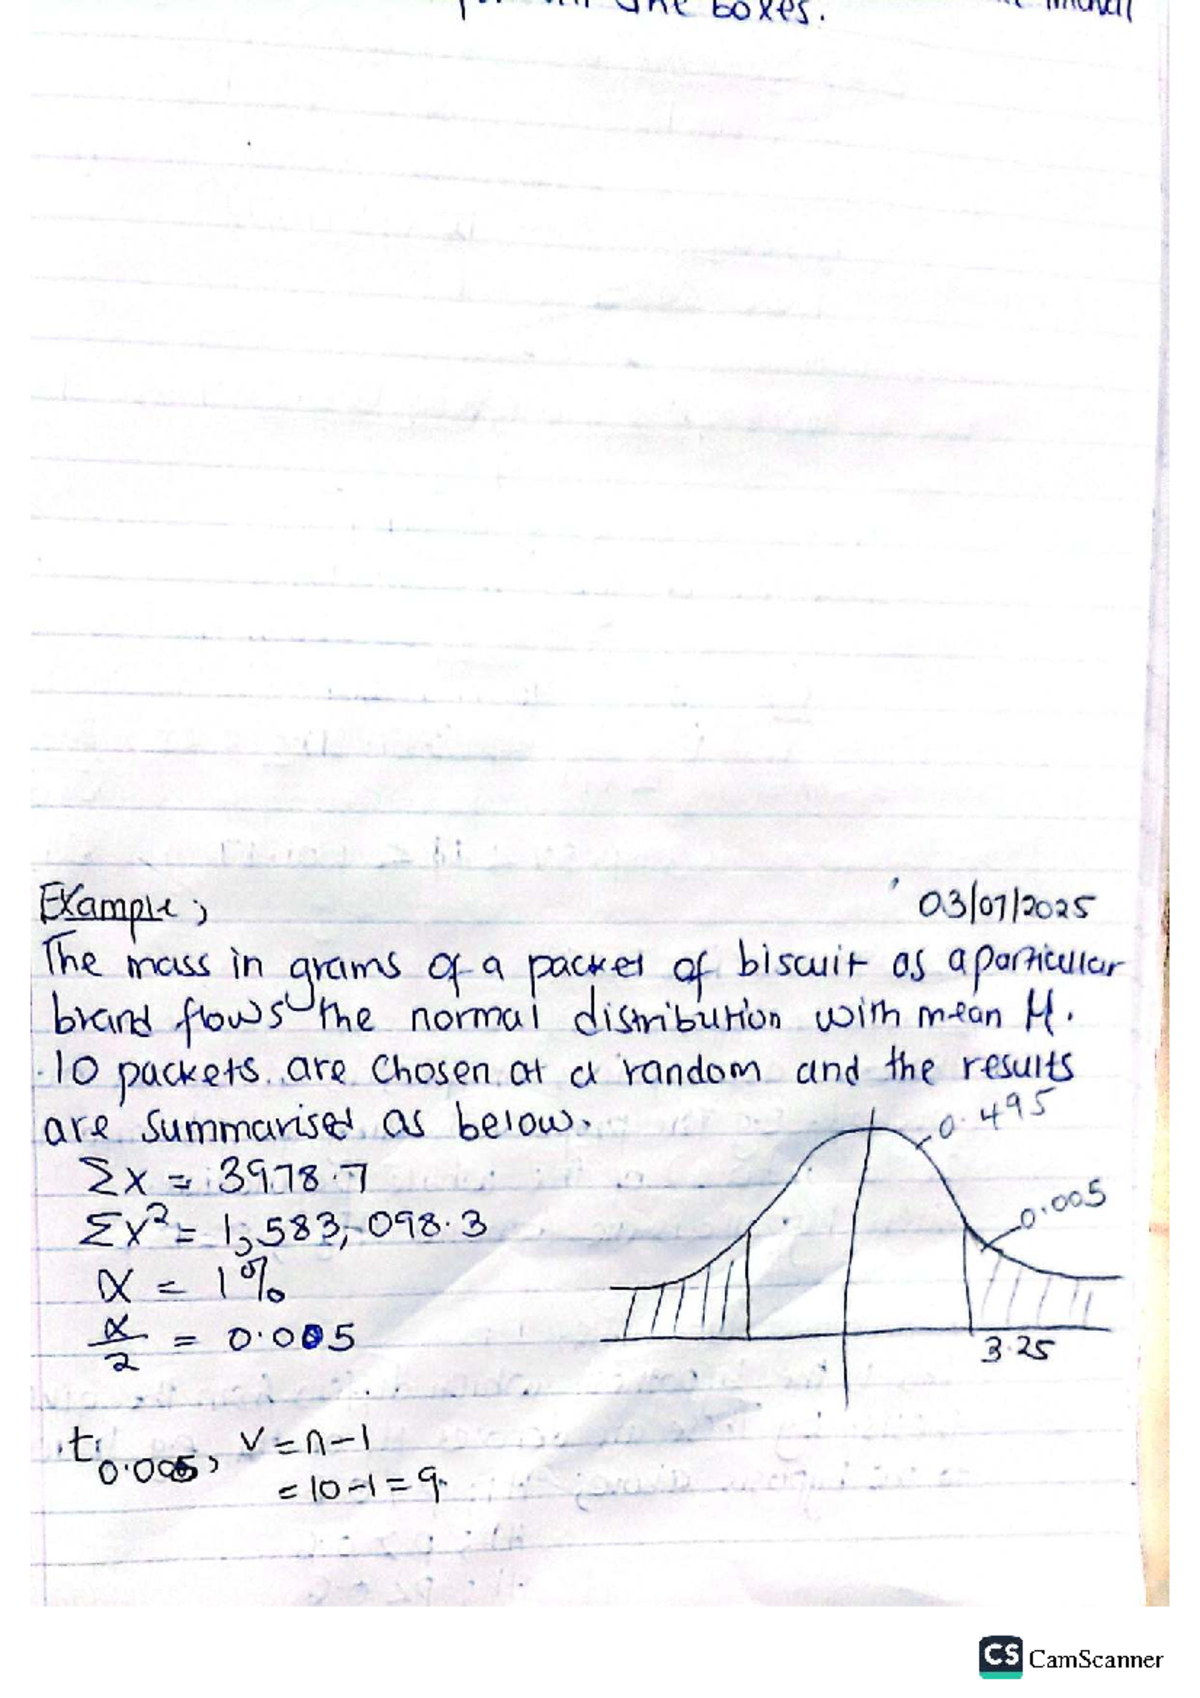 the boxes.
Example;
03/07/2025
The mass in grams of a packet of biscuit as a particular
brand flows the normal distribution with mean μ.
10 packets are chosen at a random and the results
are summarised as below.
0.495
Σx = 3978.7
0.005
Σx² = 1,583,098.3
α = 1%
α/2 = 0.005
3.25
t0.005, v = n-1
= 10-1 = 9.
CS CamScanner